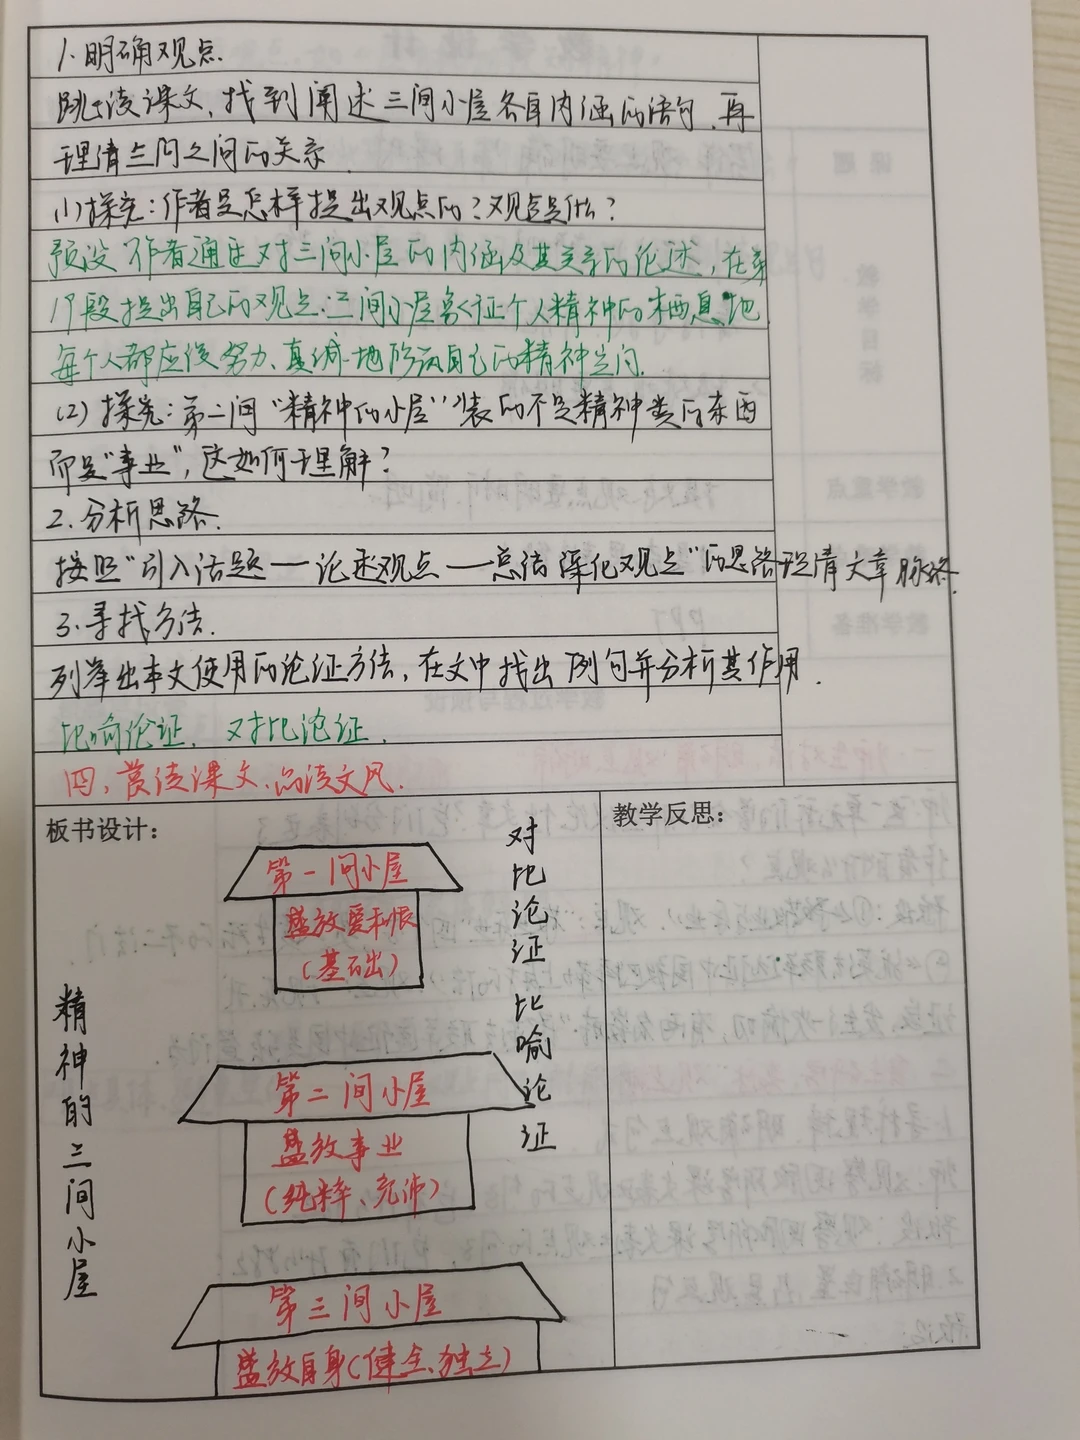 1.明确观点.
跳读课文,找到阐述三间小屋各自内涵的语句,再
理清三间之间的关系.
(1)探究:作者是怎样提出观点的?观点是什么?
预设 作者通过对三间小屋的内涵及其关系的论述,在第
17段提出自己的观点:三间小屋象征个人精神的栖息地,
每个人都应该努力、真诚地修筑自己的精神空间.
(2)探究:第二间“精神的小屋”装的不是精神类的东西
而是“事业”,这如何理解?
2.分析思路.
按照“引入话题—论述观点—总结深化观点”的思路理清文章脉络.
3.寻找方法.
列举出本文使用的论证方法,在文中找出例句并分析其作用.
比喻论证、对比论证.
四、赏读课文,品读文风.
板书设计:
精神的三间小屋
第一间小屋
盛放爱和恨
(基础)
第二间小屋
盛放事业
(纯粹、充沛)
第三间小屋
盛放自身(健全、独立)
对比论证
比喻论证
教学反思: